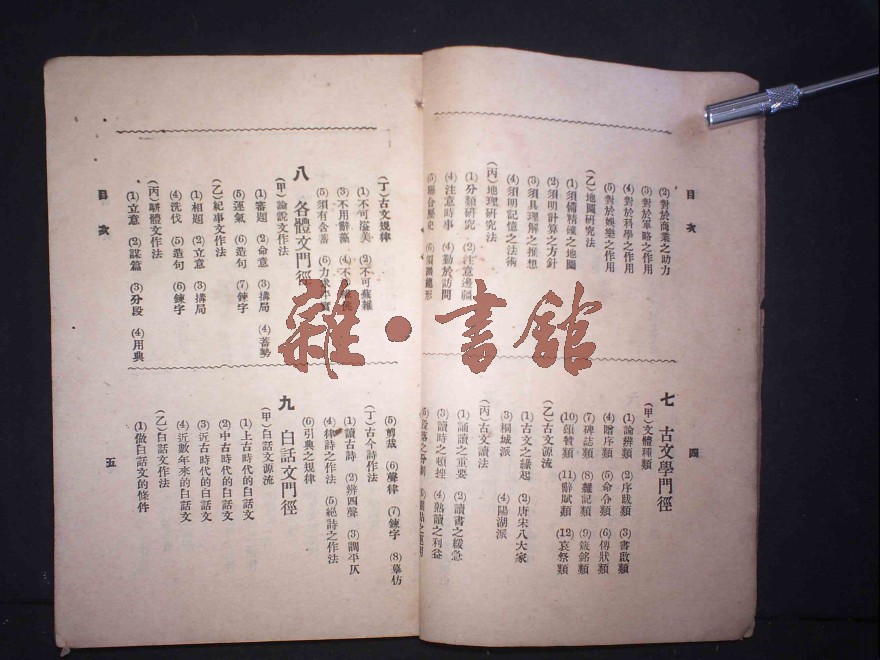 目次
(2)對於商業之助力
(3)對於軍略之作用
(4)對於科學之作用
(5)對於娛樂之作用
(乙)地圖研究法
(1)須備精確之地圖
(2)須明計算之方針
(3)須具理解之推想
(4)須明記憶之法術
(丙)地理研究法
(1)分類研究 (2)注意邊疆
(4)注意時事 (4)勤於訪問
(5)聯合歷史
四
七 古文學門徑
(甲)文體種類
(1)論辨類 (2)序跋類 (3)書啟類
(4)贈序類 (5)命令類 (6)傳狀類
(7)碑誌類 (8)雜記類 (9)箴銘類
(10)頌贊類 (11)辭賦類 (12)哀祭類
(乙)古文源流
(1)古文之緣起 (2)唐宋八大家
(3)桐城派 (4)陽湖派
(丙)古文讀法
(1)誦讀之重要 (2)讀書之緩急
(3)讀時之頓挫 (4)熟讀之利益
(丁)古文規律
(1)不可溢美 (2)不可蕪雜
(3)不用辭藻
(5)須有含蓄
八 各體文門徑
(甲)論說文作法
(1)審題 (2)命意 (3)搆局 (4)蓄勢
(5)運氣 (6)造句 (7)鍊字
(乙)紀事文作法
(1)相題 (2)立意 (3)搆局
(4)洗伐 (5)造句 (6)鍊字
(丙)駢體文作法
(1)立意 (2)謀篇 (3)分段 (4)用典
目次
(5)剪裁 (6)聲律 (7)鍊字 (8)摹仿
(丁)古今詩作法
(1)讀古詩 (2)辨四聲 (3)調平仄
(4)律詩之作法 (5)絕詩之作法
(6)引典之規律
九 白話文門徑
(甲)白話文源流
(1)上古時代的白話文
(2)中古時代的白話文
(3)近古時代的白話文
(4)近數年來的白話文
(乙)白話文作法
(1)做白話文的條件
五
雜·書館